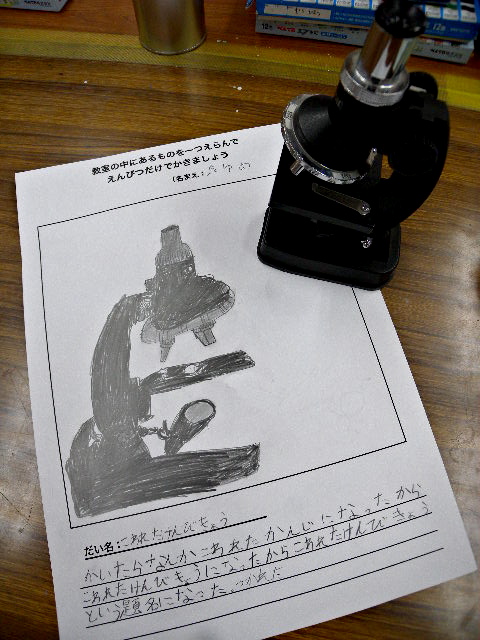 教室の中にあるものを一つえらんで
えんぴつだけでかきましょう
(名まえ:
だい名:こわれたけんびきょう
かいたらなんかこわれたかんじになったから
こわれたけんびきょうになったからこわれたけんびきょう
という題名になった。つかれた